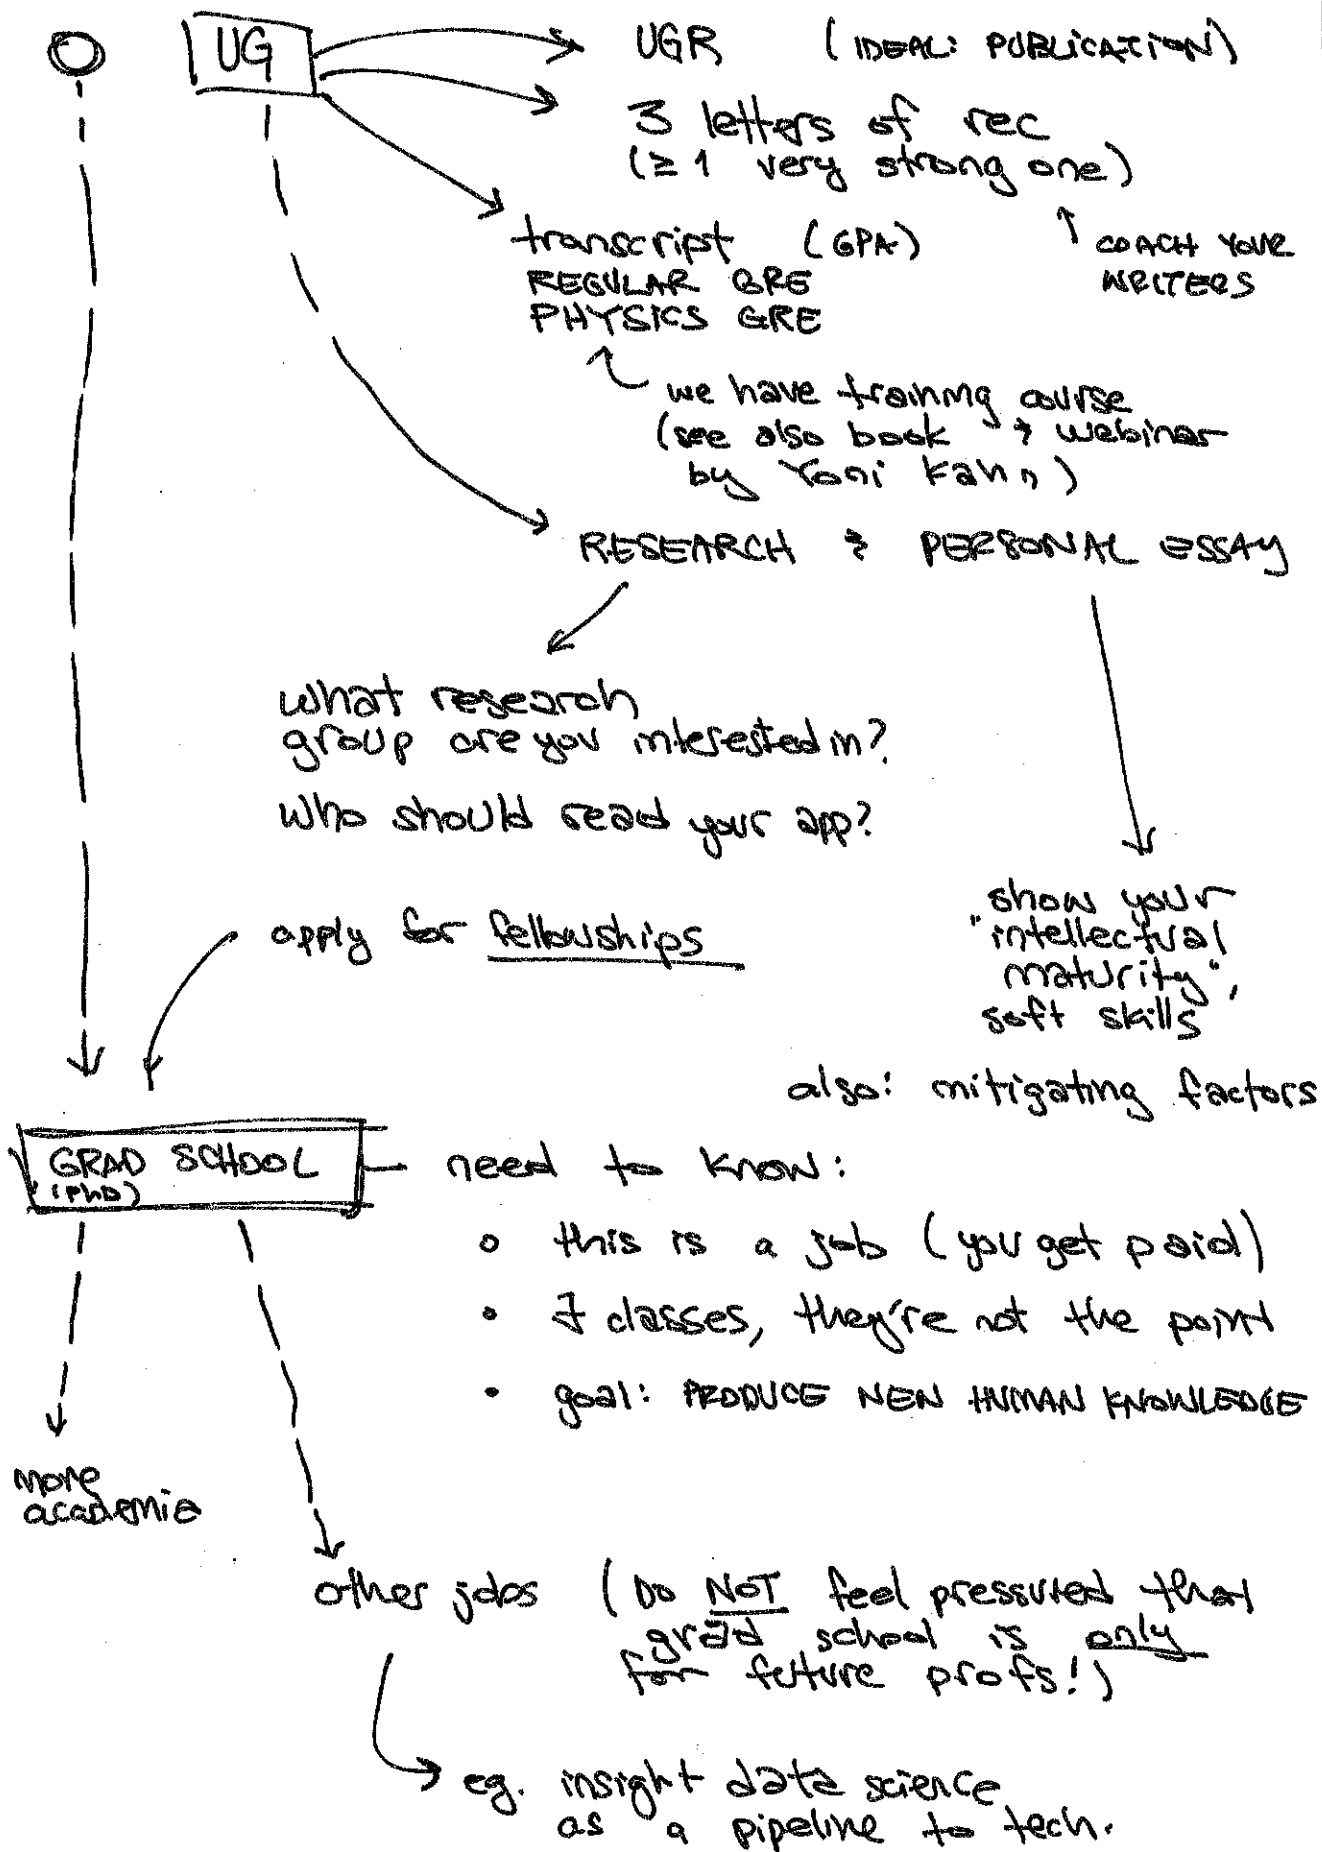 UG
UGR (IDEAL: PUBLICATION)
3 letters of rec
(≥ 1 very strong one)
↑ COACH YOUR
WRITERS
transcript (GPA)
REGULAR GRE
PHYSICS GRE
we have training course
(see also book & webinar
by Yoni Kahn)
RESEARCH & PERSONAL ESSAY
what research
group are you interested in?
who should read your app?
show your
"intellectual
maturity",
soft skills
also: mitigating factors
apply for fellowships
GRAD SCHOOL
(PhD)
need to know:
• this is a job (you get paid)
• ∃ classes, they're not the point
• goal: PRODUCE NEW HUMAN KNOWLEDGE
more
academia
other jobs (DO NOT feel pressured that
grad school is only
for future profs!)
eg. insight data science
as a pipeline to tech.